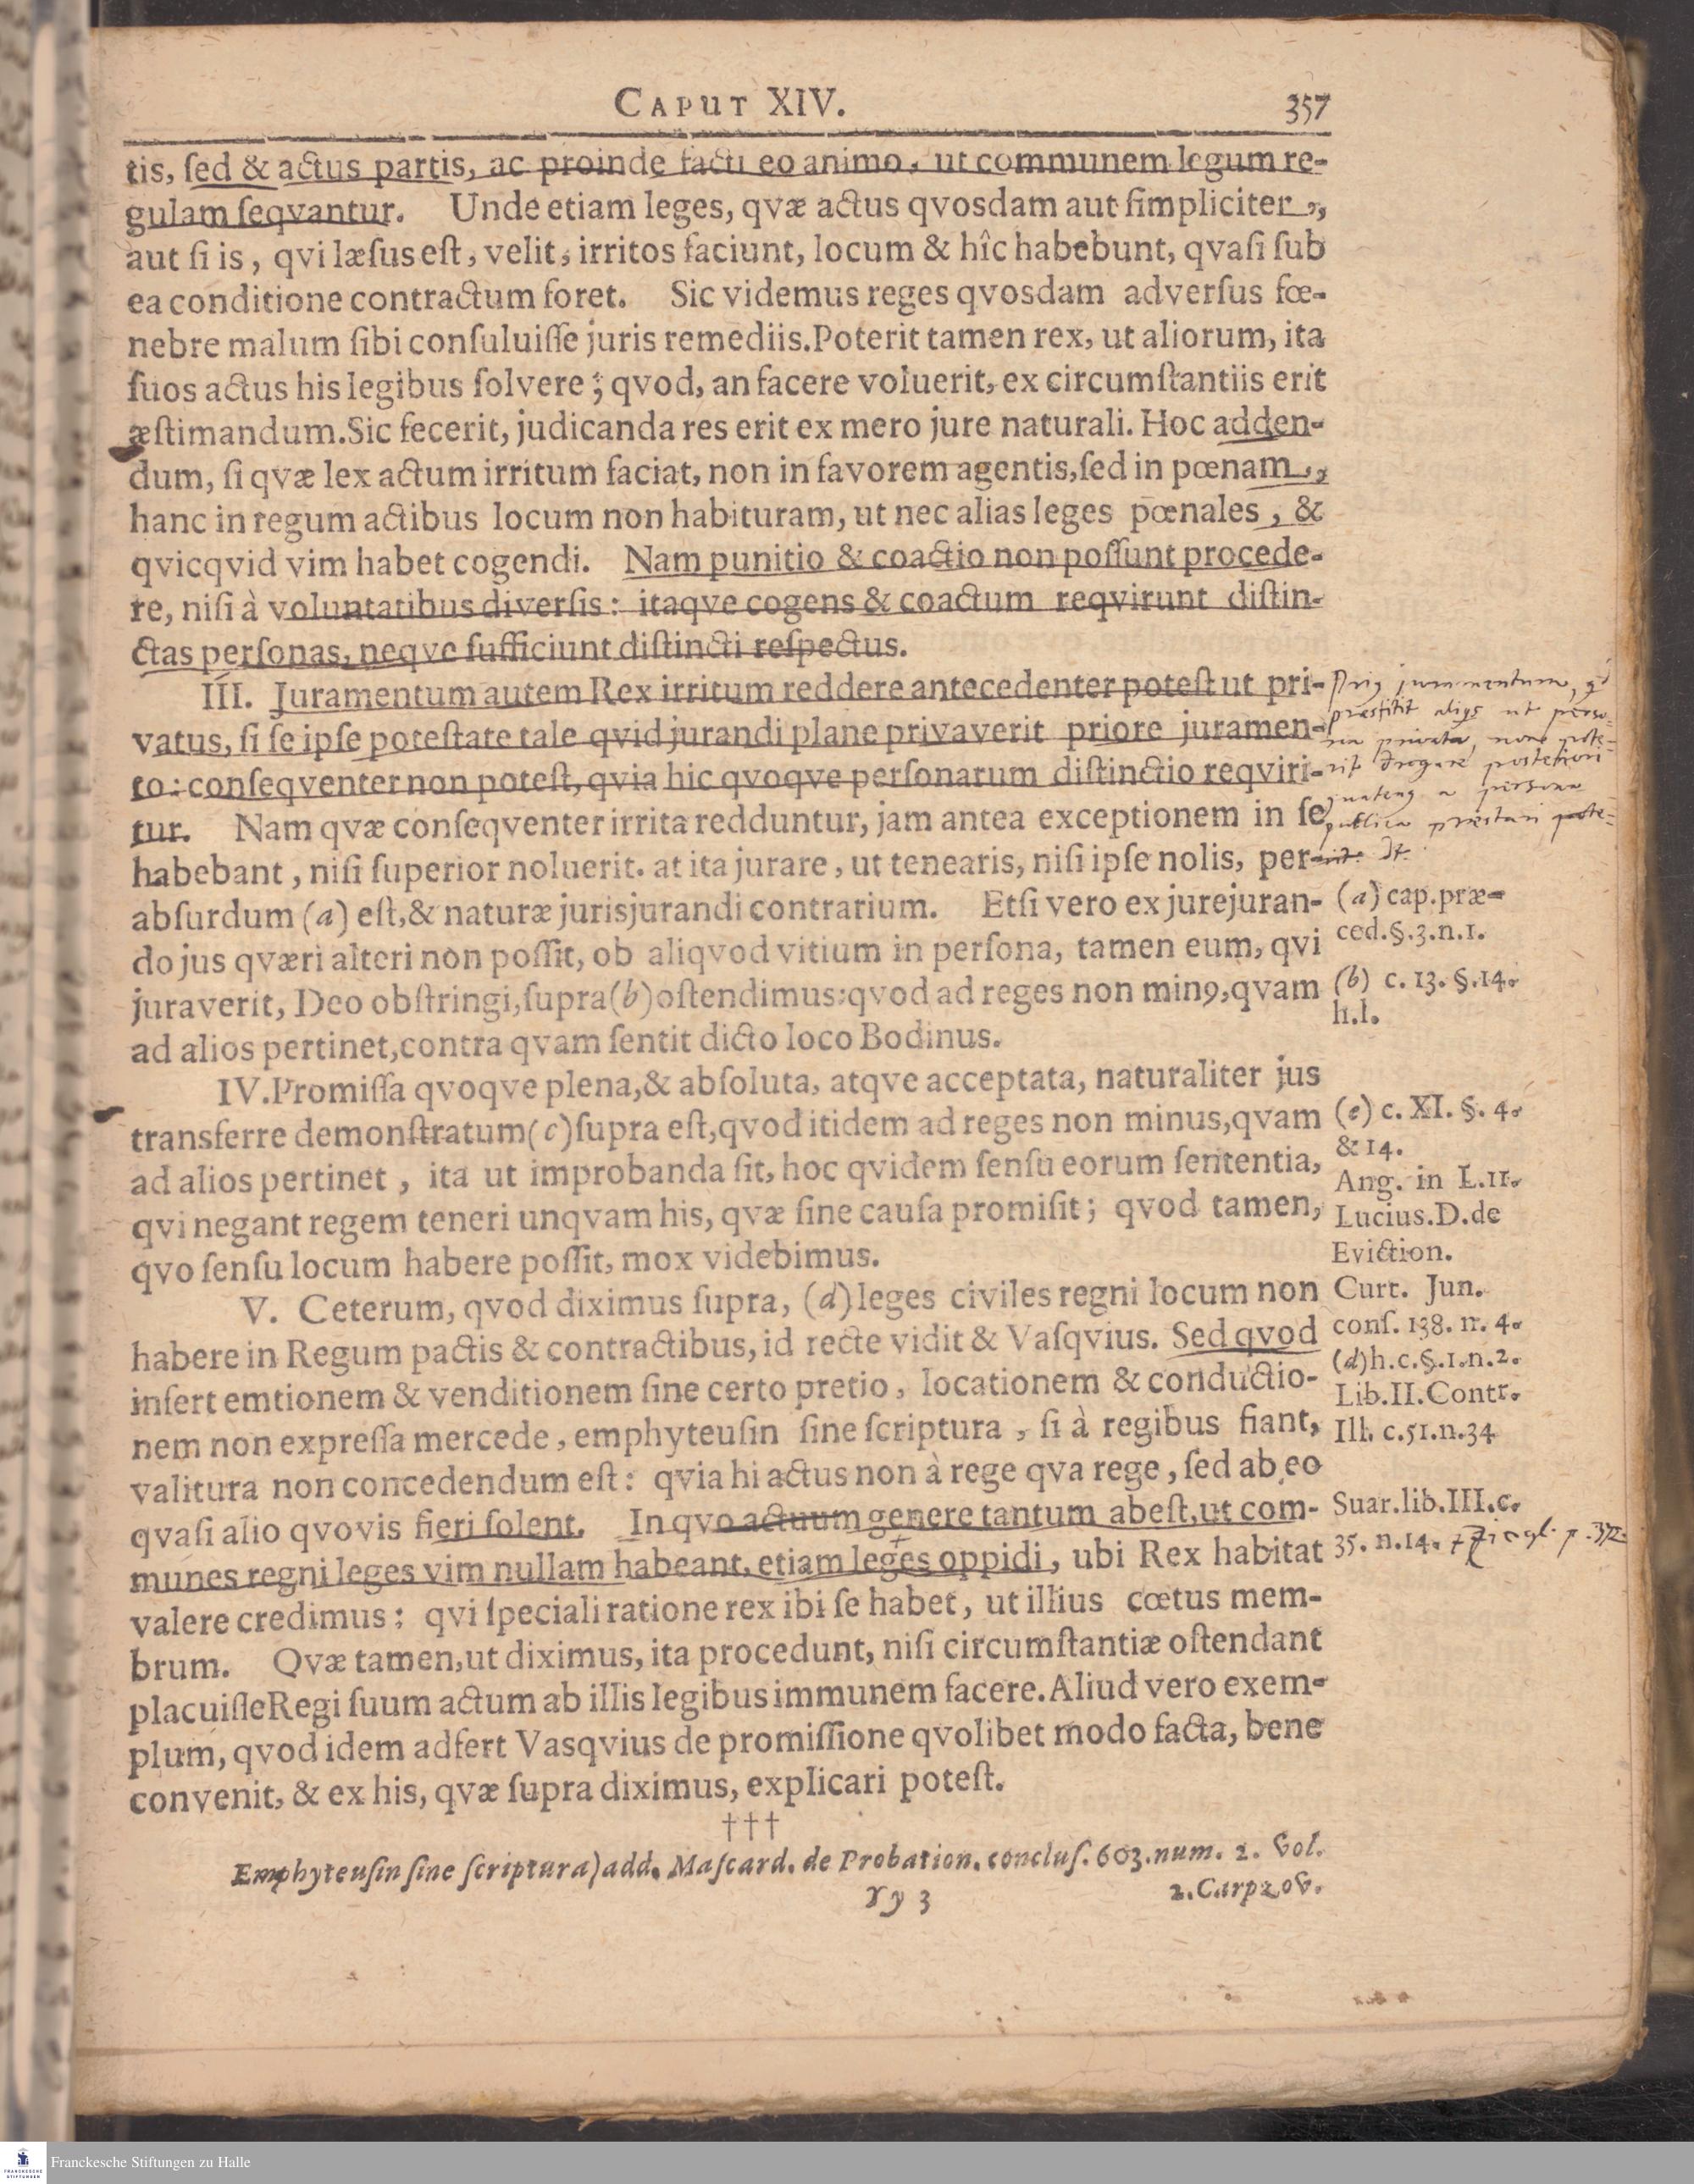 CAPUT XIV.
357
tis, ſed & actus partis, ac proinde facti eo animo, ut communem legum re-
gulam ſeqvantur. Unde etiam leges, qvæ actus qvosdam aut ſimpliciter,
aut ſi is, qvi læſus eſt, velit, irritos faciunt, locum & hîc habebunt, qvaſi ſub
ea conditione contractum foret. Sic videmus reges qvosdam adverſus fœ-
nebre malum ſibi conſuluiſſe juris remediis. Poterit tamen rex, ut aliorum, ita
ſuos actus his legibus ſolvere; qvod, an facere voluerit, ex circumſtantiis erit
æſtimandum. Sic fecerit, judicanda res erit ex mero jure naturali. Hoc adden-
dum, ſi qvæ lex actum irritum faciat, non in favorem agentis, ſed in pœnam,
hanc in regum actibus locum non habituram, ut nec alias leges pœnales, &
qvicqvid vim habet cogendi. Nam punitio & coactio non poſſunt procede-
re, niſi à voluntatibus diverſis: itaqve cogens & coactum reqvirunt diſtin-
ctas perſonas, neqve ſufficiunt diſtincti reſpectus.
III. Juramentum autem Rex irritum reddere antecedenter poteſt ut pri-
vatus, ſi ſe ipſe poteſtate tale qvid jurandi plane privaverit priore juramen-
to: conſeqventer non poteſt, qvia hic qvoqve perſonarum diſtinctio reqviri-
tur. Nam qvæ conſeqventer irrita redduntur, jam antea exceptionem in ſe
habebant, niſi ſuperior noluerit. at ita jurare, ut tenearis, niſi ipſe nolis, per-
abſurdum (a) eſt, & naturæ jurisjurandi contrarium. Etſi vero ex jurejuran-
do jus qværi alteri non poſſit, ob aliqvod vitium in perſona, tamen eum, qvi
juraverit, Deo obſtringi, ſupra (b) oſtendimus: qvod ad reges non minꝰ, qvam
ad alios pertinet, contra qvam ſentit dicto loco Bodinus.
IV. Promiſſa qvoqve plena, & abſoluta, atqve acceptata, naturaliter jus
transferre demonſtratum (c) ſupra eſt, qvod itidem ad reges non minus, qvam
ad alios pertinet, ita ut improbanda ſit, hoc qvidem ſenſu eorum ſententia,
qvi negant regem teneri unqvam his, qvæ ſine cauſa promiſit; qvod tamen,
qvo ſenſu locum habere poſſit, mox videbimus.
V. Ceterum, qvod diximus ſupra, (d) leges civiles regni locum non
habere in Regum pactis & contractibus, id recte vidit & Vaſqvius. Sed qvod
infert emtionem & venditionem ſine certo pretio, locationem & conductio-
nem non expreſſa mercede, emphyteuſin ſine ſcriptura, ſi à regibus fiant,
valitura non concedendum eſt: qvia hi actus non à rege qva rege, ſed ab eo
qvaſi alio qvovis fieri ſolent. In qvo actuum genere tantum abeſt, ut com-
munes regni leges vim nullam habeant, etiam leges oppidi, ubi Rex habitat
valere credimus: qvi ſpeciali ratione rex ibi ſe habet, ut illius cœtus mem-
brum. Qvæ tamen, ut diximus, ita procedunt, niſi circumſtantiæ oſtendant
placuiſſe Regi ſuum actum ab illis legibus immunem facere. Aliud vero exem-
plum, qvod idem adfert Vasqvius de promiſſione qvolibet modo facta, bene
convenit, & ex his, qvæ ſupra diximus, explicari poteſt.
†††
Emphyteuſin ſine ſcriptura) add. Maſcard. de Probation. concluſ. 603. num. 2. Vol.
Yy 3
2. Carpzov.
juramentum,
præstitit ut perso-
privata, non pote-
publica præstari pote-
(a) cap. præ-
ced. §. 3. n. 1.
(b) c. 13. §. 14.
h. l.
(c) c. XI. §. 4.
& 14.
Ang. in L. 11.
Lucius. D. de
Eviction.
Curt. Jun.
conſ. 138. n. 4.
(d) h. c. §. 1. n. 2.
Lib. II. Contr.
Ill. c. 51. n. 34
Suar. lib. III. c.
35. n. 14. + Ziegl. p. 372.
Franckesche Stiftungen zu Halle
FRANCKESCHE
STIFTUNGEN